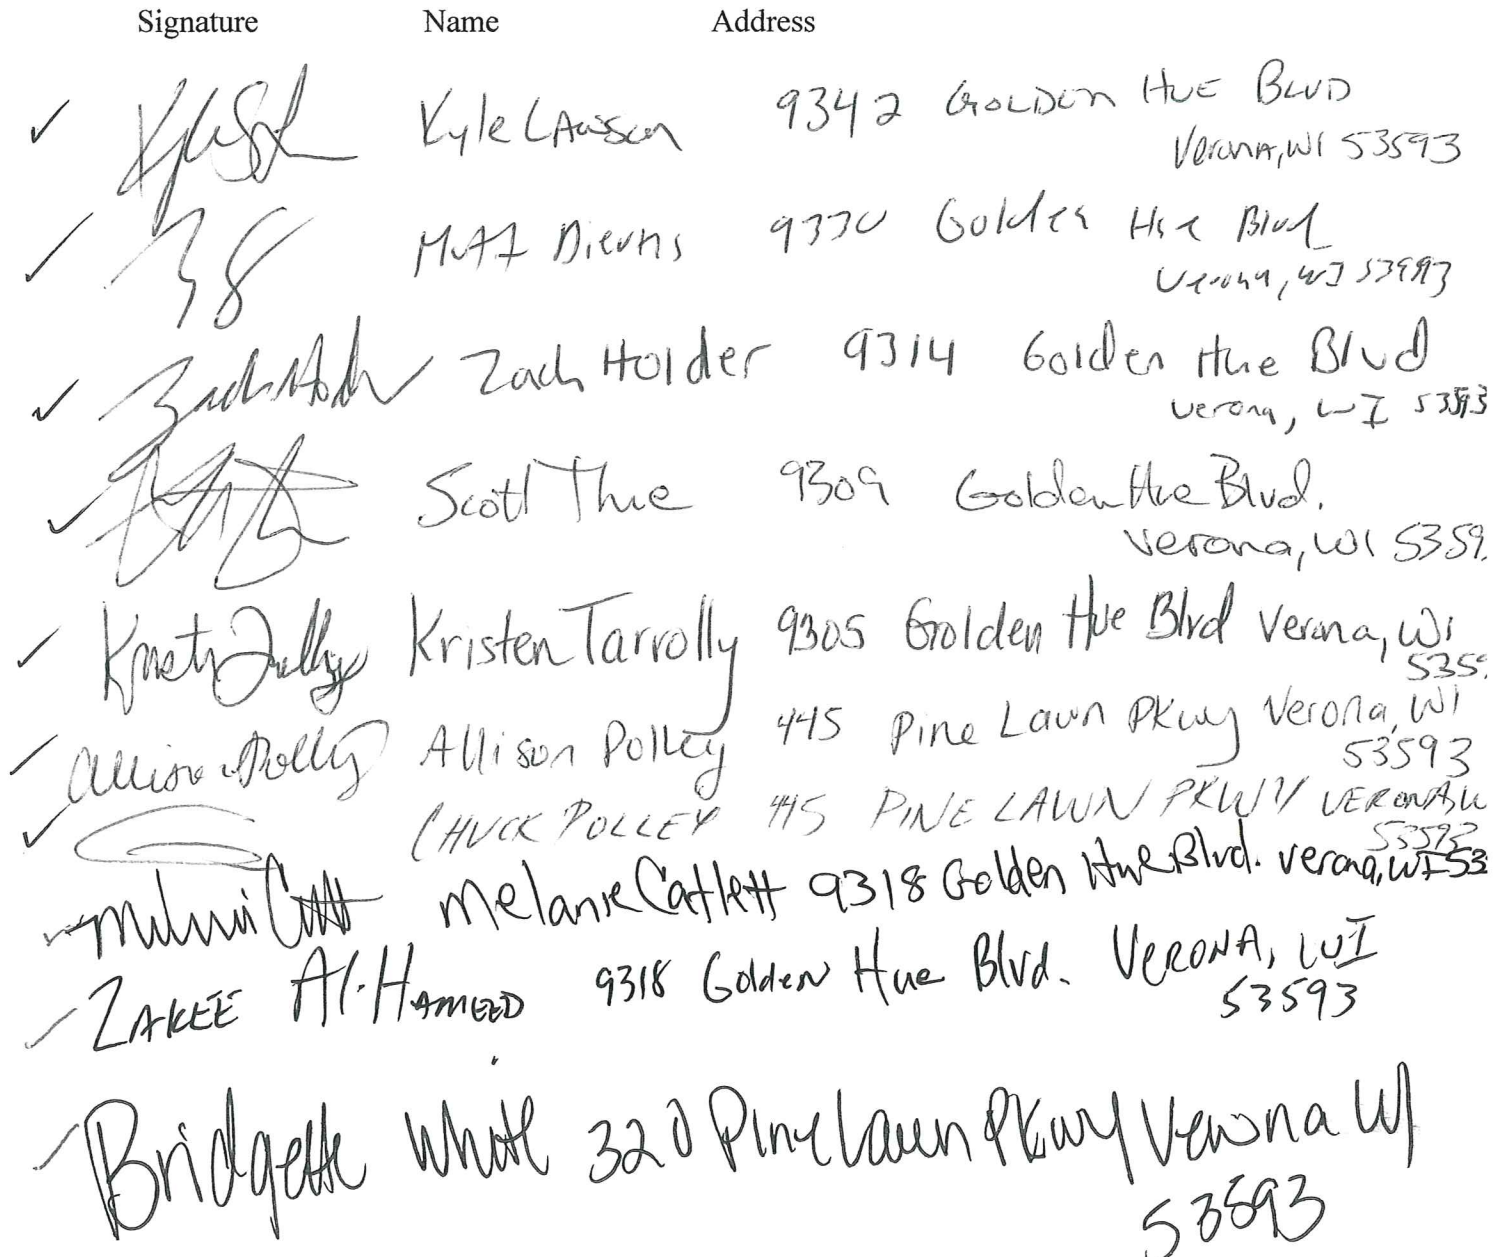 Signature Name Address
Kyle Lawson 9342 GOLDEN HUE BLVD
Verona, WI 53593
Matt Dierns 9330 Golden Hue Blvd
Verona, WI 53593
Zach Holder Zach Holder 9314 Golden Hue Blvd
Verona, WI 53593
Scott Thue 9309 Golden Hue Blvd.
Verona, WI 5359
Kristen Tarrolly 9305 Golden Hue Blvd Verona, WI
5359
Allison Polley Allison Polley 445 Pine Lawn PKwy Verona, WI
53593
CHUCK POLLEY 445 PINE LAWN PKWY VERONA, W
53593
Melanie Catlett 9318 Golden Hue Blvd. Verona, WI 53
ZAKEE Al-HAMEED 9318 Golden Hue Blvd. VERONA, WI
53593
Bridgette White 320 Pine Lawn PKwy Verona WI
53593